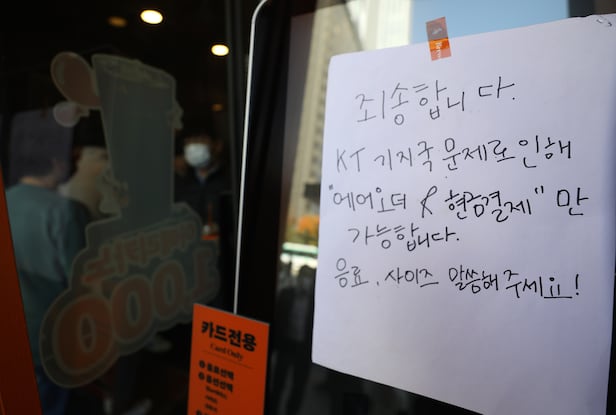 죄송합니다.
KT 기지국 문제로 인해
"에어오더 & 현금결제" 만
가능합니다.
음료, 사이즈 말씀해 주세요!
카드전용
Card Only
음료선택
옵션선택
1,000